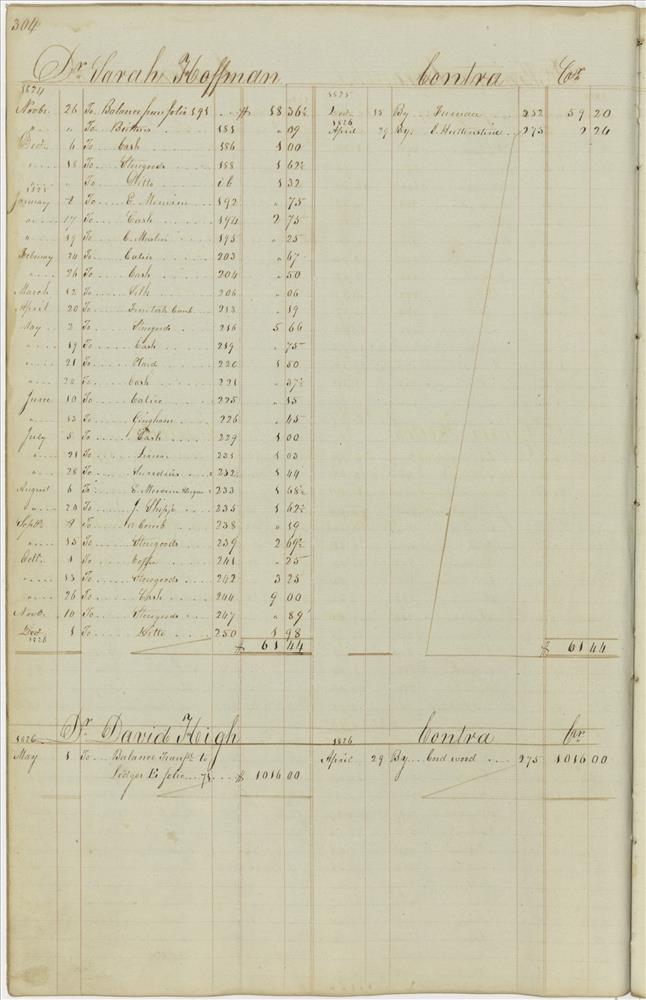 304
Dr. Sarah Hoffman Contra Cr.
1824 1825
Novbr. 26 To Balance from folio 191 $ 18 36½ Decr. 13 By Furnace 252 59 20
" " To Butter 181 " 09 1826 April 29 By 275 2 24
Decr. 6 To Cash 186 1 00
" 18 To Storegoods 188 1 62½
" " To Ditto ib 1 32
1825
January 4 To E. 192 " 75
" 17 To Cash 194 2 75
" 19 To 195 " 25
February 24 To Calico 203 " 67
" 26 To Cash 204 " 50
March 12 To Silk 206 " 06
April 20 To Comb 213 " 19
May 2 To Storegoods 216 5 66
" 19 To Cash 219 " 75
" 21 To Plaid 220 1 50
" 28 To Cash 221 " 37½
June 10 To Calico 225 " 15
" 13 To Gingham 226 " 45
July 5 To Cash 229 1 00
" 21 To 231 1 03
" 28 To Sundries 232 1 44
August 6 To E. 233 1 68½
" 20 To J. 235 1 62½
Septr. 4 To a Comb 238 " 19
" 13 To Storegoods 239 2 69½
Octr. 1 To Coffee 241 " 25
" 13 To Storegoods 242 3 23
" 26 To Cash 244 9 00
Novbr. 10 To Storegoods 247 " 89
Decr. 1 To Ditto 250 1 98
1826
$ 61 44 $ 61 44
Dr. David High Contra Cr.
1826 1826
May 1 To Balance Transfd. to April 29 By Cord wood 275 1016 00
Ledger E folio 75 $ 1016 00